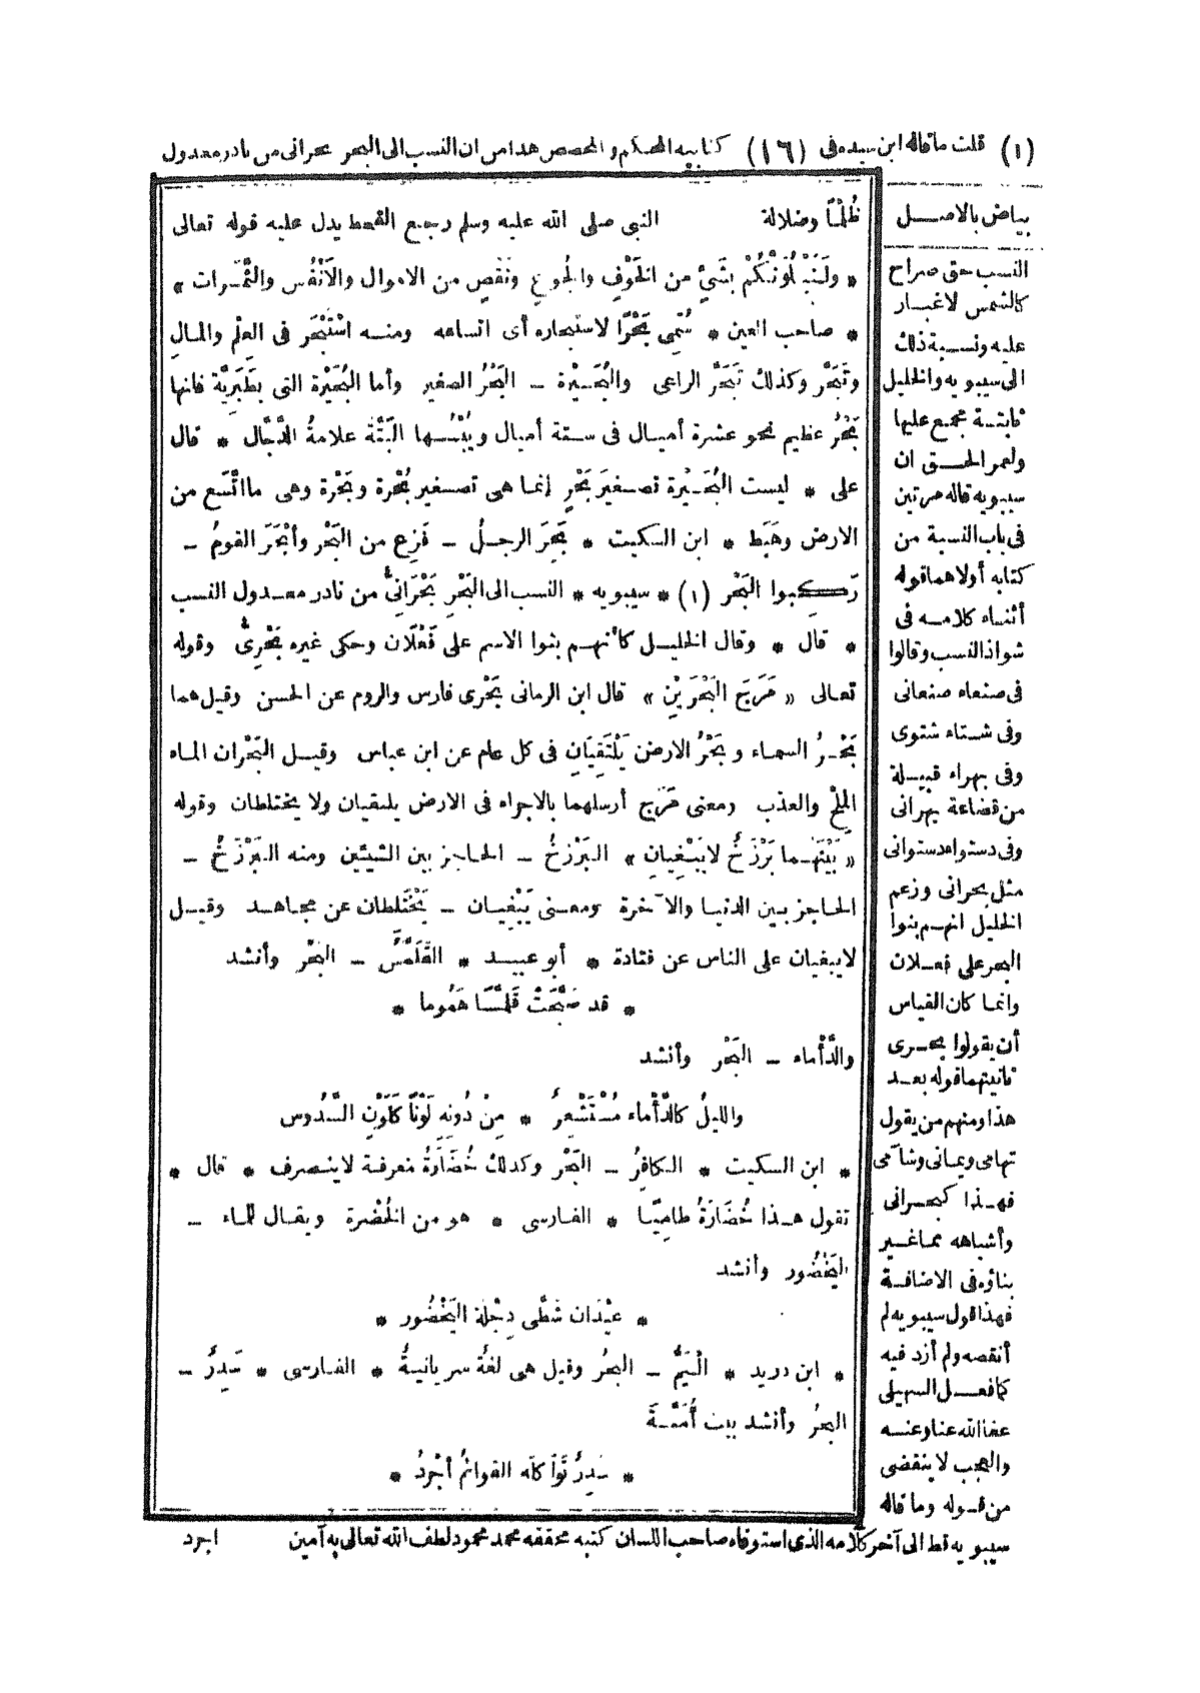 (١) قلت ما قاله ابن سيده فى (١٦) كتابيه المحكم والمخصص هذا من ان النسب الى البحر بحرانى من نادر معدول
ظُلْمًا وضلالة النبى صلى الله عليه وسلم رجع القحط يدل عليه قوله تعالى
« ولَنَبْلُوَنَّكُمْ بشَىْءٍ من الخَوْفِ والجُوعِ ونَقْصٍ من الاموال والأَنْفُس والثَّمَرات »
* صاحب العين * سُمِّى بَحْرًا لاستبحاره أى اتساعه ومنه اسْتَبْحَر فى العِلْم والمالِ
وتَبَحَّر وكذلك تَبَحَّر الراعى والبُحَيْرة ـ البَحْرُ الصغير وأما البُحَيْرة التى بطَبَرِيَّة فانها
بَحْرُ عظيم نحو عشرة أميال فى ستة أميال ويُبْسُها البَتَّةَ علامةُ الدَّجَّال * قال
على * ليست البُحَيْرة تصغيرَ بَحْرٍ إنما هى تصغير بُحْرة وبَحْرة وهى ما اتَّسع من
الارض وهَبَط * ابن السكيت * بَحِرَ الرجلُ ـ فَزِع من البَحْر وأَبْحَرَ القومُ ـ
رَكِبوا البَحْر (١) * سيبويه * النسب الى البَحْرِ بَحْرَانِىٌّ من نادر معدول النسب
* قال * وقال الخليل كأنهم بنوا الاسم على فَعْلَان وحكى غيره بَحْرِىٌّ وقوله
تعالى « مَرَجَ البَحْرَيْنِ » قال ابن الرمانى بَحْرَى فارس والروم عن الحسن وقيل هما
بَحْرُ السماء وبَحْرُ الارض يَلْتَقِيَانِ فى كل عام عن ابن عباس وقيل البَحْران الماء
المِلْح والعذب ومعنى مَرَج أرسلهما بالاجراء فى الارض يلتقيان ولا يختلطان وقوله
« بَيْنَهُما بَرْزَخٌ لا يَبْغِيانِ » البَرْزخُ ـ الحاجز بين الشيئين ومنه البَرْزَخُ ـ
الحاجز بين الدنيا والآخرة ومعنى يَبْغِيان ـ يَخْتَلِطان عن مجاهد وقيل
لا يبغيان على الناس عن قتادة * أبو عبيد * القَلَمَّسُ ـ البَحْر وأنشد
* قد صَبَّحَتْ قَلَمَّسًا هَمُوما *
والدَّأْماء ـ البَحْر وأنشد
والليلُ كالدَّأْماء مُسْتَشْعِرٌ * مِنْ دُونِهِ لَوْنًا كَلَوْنِ السُّدُوس
* ابن السكيت * الكافِرُ ـ البَحْر وكذلك خُضَارَةُ معرفة لا ينصرف * قال *
تقول هذا خُضَارَةُ طامِيًا * الفارسى * هو من الخُضْرة ويقال للماء ـ
اليَخْضُور وأنشد
* عَيْدَان شَطَّى دِجْلة اليَخْضُور *
* ابن دريد * الْيَمُّ ـ البحرُ وقيل هى لغةٌ سريانيةٌ * الفارسى * سَدِرٌ ـ
البحرُ وأنشد بيت أُمَيَّةَ
* سَدِرٌ تَوَاكَلَه القوائمُ أَجْرَدُ *
بياض بالاصل
النسب حق صراح
كالشمس لا غبار
عليه ونسبة ذلك
الى سيبويه والخليل
ثابتة مجمع عليها
ولعمر الحق ان
سيبويه قاله مرتين
فى باب النسبة من
كتابه أولاهما قوله
أثناء كلامه فى
شواذ النسب وقالوا
فى صنعاء صنعانى
وفى شتاء شتوى
وفى بهراء قبيلة
من قضاعة بهرانى
وفى دستواء دستوانى
مثل بحرانى وزعم
الخليل انهم بنوا
البحر على فعلان
وانما كان القياس
أن يقولوا بحرى
ثانيتهما قوله بعد
هذا ومنهم من يقول
تهامى ويمانى وشآمى
فهذا كبحرانى
وأشباهه مما غير
بناؤه فى الاضافة
فهذا قول سيبويه لم
أنقصه ولم أزد فيه
كما فعل السهيلى
عفا الله عنا وعنه
والعجب لا ينقضى
من قوله وما قاله
سيبويه قط الى آخر كلامه الذى استوفاه صاحب اللسان كتبه محققه محمد محمود لطف الله تعالى به آمين
اجرد